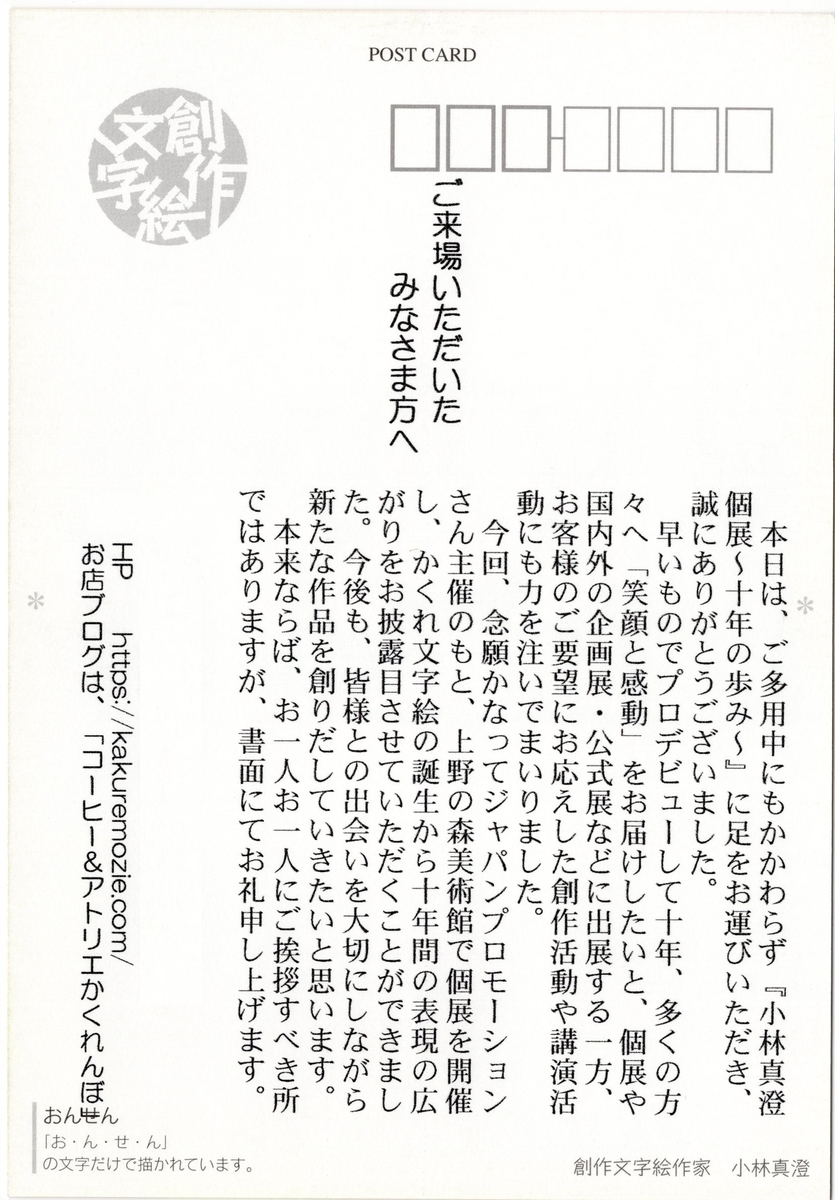 POST CARD
創作
文字絵
ご来場いただいた
みなさま方へ
本日は、ご多用中にもかかわらず『小林真澄
個展～十年の歩み～』に足をお運びいただき、
誠にありがとうございました。
早いものでプロデビューして十年、多くの方
々へ「笑顔と感動」をお届けしたいと、個展や
国内外の企画展・公式展などに出展する一方、
お客様のご要望にお応えした創作活動や講演活
動にも力を注いでまいりました。
今回、念願かなってジャパンプロモーション
さん主催のもと、上野の森美術館で個展を開催
し、かくれ文字絵の誕生から十年間の表現の広
がりをお披露目させていただくことができまし
た。今後も、皆様との出会いを大切にしながら
新たな作品を創りだしていきたいと思います。
本来ならば、お一人お一人にご挨拶すべき所
ではありますが、書面にてお礼申し上げます。
HP https://kakuremozie.com/
お店ブログは、「コーヒー&アトリエかくれんぼ」
おんせん
「お・ん・せ・ん」
の文字だけで描かれています。
創作文字絵作家 小林真澄